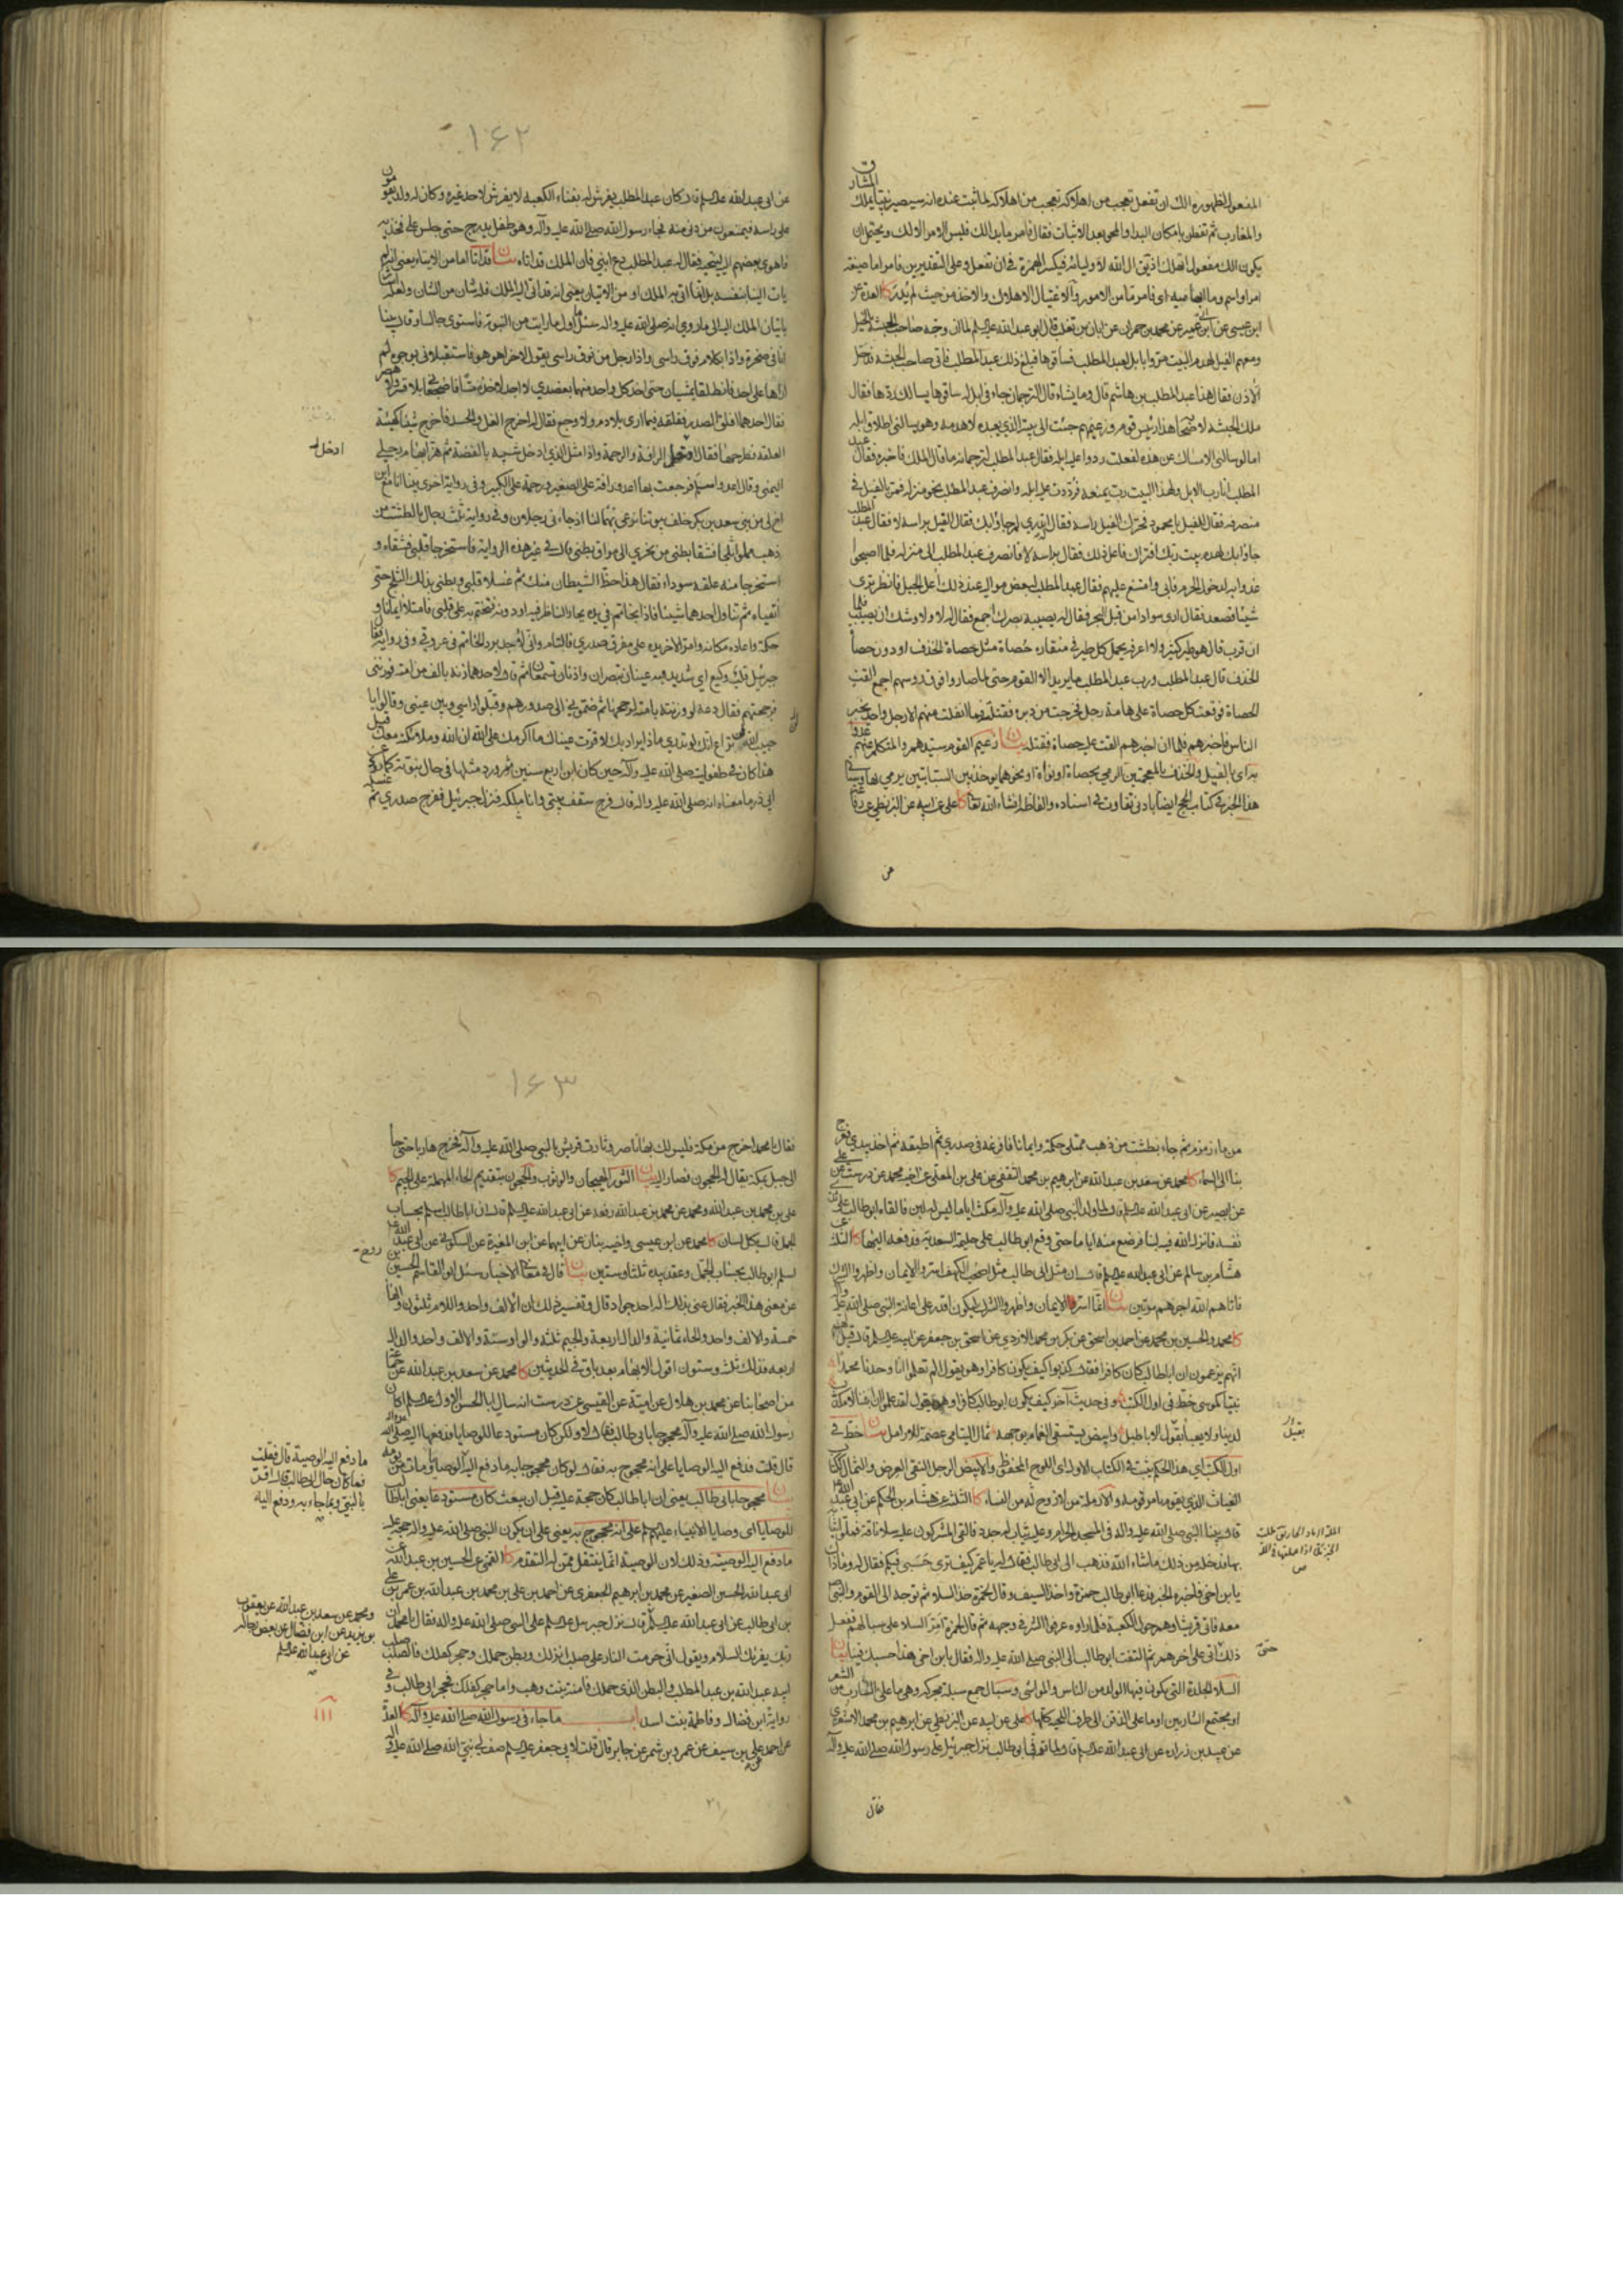 المفعول لظهوره الك ان تفعل تعجب من اهلاكه تعجب من اهلاكه لما ثبت عنده انه سيصير نبيا يملك المشارق
والمغارب ثم تفطن بامكان البداء والمحو بعد الاثبات فقال فامر ما بدا لك فليس الامر الا لك ويحتمل ان
يكون الك مفعولا لفعلك اذ يقال الله لاوليائه فيكسر الهمزة في ان تفعل وعلى التقديرين فامر اما صيغة
امر او اسم وما ابهامية اي فامر ما من الامور والاغتيال الاهلاك والاخذ من حيث لم يدر كا العدة عن
ابن عيسى عن ابن ابي عمير عن محمد بن حمران عن ابان بن تغلب قال ابو عبد الله عليه السلم لما ان وجه صاحب الحبشة بالخيل
ومعهم الفيل لهدم البيت مروا بابل لعبد المطلب فساقوها فبلغ ذلك عبد المطلب فاتى صاحب الحبشة فدخل
الاذن فقال هذا عبد المطلب بن هاشم قال وما يشاء قال الترجمان جاء في ابل له ساقوها يسالك ردها فقال
ملك الحبشة لاصحابه هذا رئيس قوم وزعيمهم جئت الى بيته الذي يعبده لاهدمه وهو يسالني اطلاق ابله
اما لو سالني الامساك عن هدمه لفعلت ردوا عليه ابله فقال عبد المطلب لترجمانه ما قال الملك فاخبره فقال عبد
المطلب انا رب الابل ولهذا البيت رب يمنعه فردت عليه ابله وانصرف عبد المطلب نحو منزله فمر بالفيل في
منصرفه فقال للفيل يا محمود فحرك الفيل راسه فقال اتدري لم جاؤا بك فقال الفيل براسه لا فقال عبد المطلب
جاؤا بك لتهدم بيت ربك افتراك فاعل ذلك فقال براسه لا فانصرف عبد المطلب الى منزله فلما اصبحوا
غدوا به لدخول الحرم فابى وامتنع عليهم فقال عبد المطلب لبعض مواليه عند ذلك اعل الجبل فانظر ترى
شيئا فصعد فقال ارى سوادا من قبل البحر فقال له يصيبه بصرك اجمع فقال له لا ولا وشك ان يصيب فلما
ان قرب قال هو طير كثير ولا اعرفه يحمل كل طير في منقاره حصاة مثل حصاة الخذف او دون حصاة
الخذف قال عبد المطلب ورب عبد المطلب ما يريد الا القوم حتى لما صاروا فوق رؤسهم اجمع القت
الحصاة فوقعت كل حصاة على هامة رجل فخرجت من دبره فقتلته فما انفلت منهم الا رجل واحد يخبر
الناس فاخبرهم فلما ان اخبرهم القت عليه حصاة فقتلته بيان زعيم القوم سيدهم والمتكلم عنهم غدوا
به اي بالفيل والخذف بالمعجمتين الرمي بحصاة او نواة او نحوهما يوخذ بين السبابتين يرمي بها وسياتي
هذا الخبر في كتاب الحج ايضا بادنى تفاوت في اسناده والفاظه انشاء الله تعالى كا علي عن ابيه عن البزنطي عن رفاعة
عن
١٤٢
عن ابي عبد الله عليه السلم قال كان عبد المطلب يفرش له بفناء الكعبة لا يفرش لاحد غيره وكان له ولد يقومون
على راسه فيمنعون من دنى منه فجاء رسول الله صلى الله عليه وآله وهو طفل يدرج حتى جلس على فخذيه
فاهوى بعضهم اليه لينحيه فقال له عبد المطلب دع ابني فان الملك قد اتاه بيان قد اتا اما من الايتاء يعني انه لم
يات الينا بنفسه بل انما اتى به الملك او من الاتيان يعني انه قد اتى اليه الملك فله شان من الشان ولعله اشار
باتيان الملك اليه الى ما روي انه صلى الله عليه واله سئل ما اول ما رايت من النبوة فاستوى جالسا وقال بينا
انا في صخرة واذا بكلام فوق راسي واذا رجل من فوق راسي يقول لاخر اهو هو فاستقبلاني بوجوه لم
ارها على احد فانطلقا يمشيان حتى اخذ كل واحد منهما بعضدي لا اجد لاخذهما مسا فاضجعاني بلا قصر ولا هصر
فقال احدهما افلق الصدر ففلقه فيما ارى بلا دم ولا وجع فقال له اخرج الغل والحسد فاخرج شيئا كهيئة
العلقة فطرحها فقال ادخل الرافة والرحمة واذا مثل الذي ادخل شبيه بالفضة ثم هز ابهام رجلي
ادخل
اليمنى وقال اغد واسلم فرجعت بها اغدو رافة على الصغير ورحمة على الكبير وفي رواية اخرى بينا انا مع
اخ لي من بني سعد بن بكر خلف بيوتنا نرعى بهما لنا اذ جاءني رجلان وفي رواية ثلث رجال بالطشت من
ذهب مملو ثلجا فشقا بطني من نحري الى مراق بطني قال في غير هذه الرواية فاستخرجا قلبي فشقاه و
استخرجا منه علقة سوداء فقال هذا حظ الشيطان منك ثم غسلا قلبي وبطني بذلك الثلج حتى
انقياه ثم تناول احدهما شيئا فاذا بخاتم في يده يحار الناظر فيه او دونه فختم به على قلبي فامتلا ايمانا و
حكمة واعاده مكانه وامر الاخر يده على مفرق صدري فالتام واني لاجد برد الخاتم في عروقي وفي رواية فقال
جبرئيل قلب وكيع اي شديد فيه عينان تبصران واذنان تسمعان ثم قال احدهما زنه بالف من امته فوزنني
فرجحتهم فقال دعه لو وزنته بامته لوزنها ثم ضموني الى صدورهم وقبلوا راسي وبين عيني وقالوا يا
حبيب الله لم تراع انك لو تدري ما ذا يراد بك لا قرت عيناك ما اكرمك على الله ان الله وملائكته معك
هذا كان في طفوليته صلى الله عليه وآله حين كان ابن اربع سنين ثم ورد مثلها في حال نبوته كما روي عن
ابي ذر ما معناه انه صلى الله عليه واله قال فرج سقف بيتي وانا بمكة فنزل جبرئيل ففرج صدري ثم غسله
من ماء زمزم ثم جاء بطشت من ذهب ممتلي حكمة وايمانا فافرغه في صدري ثم اطبقه ثم اخذ بيدي فعرج
بنا الى السماء كا محمد عن سعد بن عبد الله عن ابرهيم بن محمد الثقفي عن علي بن المعلى عن اخيه محمد عن درست عن علي
عن ابي بصير عن ابي عبد الله عليه السلم قال لما ولد النبي صلى الله عليه وآله مكث اياما ليس له لبن فالقاه ابو طالب على ثدي
نفسه فانزل الله فيه لبنا فرضع منه اياما حتى وقع ابو طالب على حليمة السعدية فدفعه اليها كا الثلثة عن
هشام بن سالم عن ابي عبد الله عليه السلم قال ان مثل ابي طالب مثل اصحاب الكهف اسروا الايمان واظهروا الشرك
فاتاهم الله اجرهم مرتين بيان انما اسر الايمان واظهر الشرك ليكون اقدر على اعانة النبي صلى الله عليه وآله
كا محمد والحسين بن محمد عن احمد بن اسحق عن بكر بن محمد الازدي عن اسحق بن جعفر عن ابيه عليه السلم قال قيل له
انهم يزعمون ان ابا طالب كان كافرا فقال كذبوا كيف يكون كافرا وهو يقول الم تعلموا انا وجدنا محمدا
نبيا كموسى خط في اول الكتب وفي حديث آخر كيف يكون ابو طالب كافرا وهو يقول لقد علموا ان ابننا لا مكذب
لدينا ولا يعبا بقول الاباطيل وابيض يستسقى الغمام بوجهه ثمال اليتامى عصمة للارامل بيان خط في
بقيل
اول الكتب اي هذا الحكم مثبت في الكتاب الاول اي اللوح المحفوظ والابيض الرجل النقي العرض والثمال ككتاب
الغياث الذي يقوم بامر قومه والارملة من لا زوج لها من النساء كا الثلثة عن هشام بن الحكم عن ابي عبد الله
قال بينا النبي صلى الله عليه واله في المسجد الحرام وعليه ثياب له جدد فالقى المشركون عليه سلا ناقة فملؤا ثيابه
بها فدخله من ذلك ما شاء الله فذهب الى ابي طالب فقال له يا عم كيف ترى حسبي فيكم فقال له وما ذاك
يا بن اخي فاخبره الخبر فدعا ابو طالب حمزة واخذ السيف وقال لحمزة خذ السلا ثم توجه الى القوم والنبي
معه فاتى قريشا وهم حول الكعبة فلما راوه عرفوا الشر في وجهه ثم قال لحمزة امر السلا على سبالهم ففعل
ذلك حتى اتى على آخرهم ثم التفت ابو طالب الى النبي صلى الله عليه واله فقال يا بن اخي هذا حسبك فينا بيان
حتى
السلا الجلدة التي يكون فيها الولد من الناس والمواشي وسبال جمع سبلة محركة وهي ما على الشارب من الشعر
او مجتمع الشاربين او ما على الذقن الى طرف اللحية كلها كا علي عن ابيه عن البزنطي عن ابرهيم بن محمد الاشعري
عن عبيد بن زرارة عن ابي عبد الله عليه السلم قال لما توفي ابو طالب نزل جبرئيل على رسول الله صلى الله عليه وآله
فقال
١٤٣
فقال يا محمد اخرج من مكة فليس لك بها ناصر وثارت قريش بالنبي صلى الله عليه وآله فخرج هاربا حتى جاء
الى جبل بمكة يقال له الحجون فصار اليه بيان الثور الهيجان والوثوب والحجون بتقديم الحاء المهملة على الجيم كا
علي بن محمد بن عبد الله ومحمد عن محمد بن عبد الله رفعه عن ابي عبد الله عليه السلم قال ان ابا طالب اسلم بحساب
الجمل قال بكل لسان كا محمد عن ابن عيسى واخيه بنان عن ابيهما عن ابن المغيرة عن السكوني عن ابي عبد الله
اسلم ابو طالب بحساب الجمل وعقد بيده ثلثا وستين بيان قال في معاني الاخبار سئل ابو القاسم الحسين بن روح
عن معنى هذا الخبر فقال عنى بذلك اله احد جواد قال وتفسير ذلك ان الالف واحد واللام ثلثون والهاء
خمسة والالف واحد والحاء ثمانية والدال اربعة والجيم ثلثة والواو ستة والالف واحد والدال
اربعة فذلك ثلث وستون اقول الابهام بعد باق في الحديثين كا محمد عن سعد بن عبد الله عن جماعة
من اصحابنا عن محمد بن هلال عن امية بن علي القيسي عن درست انه سال ابا الحسن الاول عليه السلم اكان
رسول الله صلى الله عليه وآله محجوجا بابي طالب فقال لا ولكن كان مستودعا للوصايا فدفعها اليه صلى الله عليه وآله
قال قلت فدفع اليه الوصايا على انه محجوج به فقال لو كان محجوجا به ما دفع اليه الوصايا ومات من يومه
ما دفع اليه الوصية قال فقلت
فما كان حال ابي طالب قال اقر
بالنبي وبما جاء به ودفع اليه
بيان محجوجا بابي طالب يعني ان ابا طالب كان حجة عليه قبل ان يبعث كان مستودعا يعني ابا طالب
للوصايا اي وصايا الانبياء عليهم السلم على انه محجوج به يعني على ان يكون النبي صلى الله عليه واله حجة عليه
ما دفع اليه الوصية وذلك لان الوصية انما ينتقل ممن له التقدم كا القمي عن الحسين بن عبد الله عن
ابي عبد الله الحسين الصغير عن محمد بن ابرهيم الجعفري عن احمد بن علي بن محمد بن عبد الله بن عمر بن علي
ومحمد عن سعد بن عبد الله عن يعقوب
بن يزيد عن ابن فضال عن بعض رجاله
عن ابي عبد الله عليه السلم
بن ابي طالب عن ابي عبد الله عليه السلم قال نزل جبرئيل عليه السلم على النبي صلى الله عليه واله فقال يا محمد ان
ربك يقرئك السلام ويقول اني حرمت النار على صلب انزلك وبطن حملك وحجر كفلك فالصلب صلب
ابيه عبد الله بن عبد المطلب والبطن الذي حملك فامنة بنت وهب واما حجر كفلك فحجر ابي طالب وفي
رواية ابن فضال وفاطمة بنت اسد باب ما جاء في رسول الله صلى الله عليه وآله كا العدة
عن احمد عن علي بن سيف عن عمرو بن شمر عن جابر قال قلت لابي جعفر عليه السلم صف لي نبي الله صلى الله عليه وآله